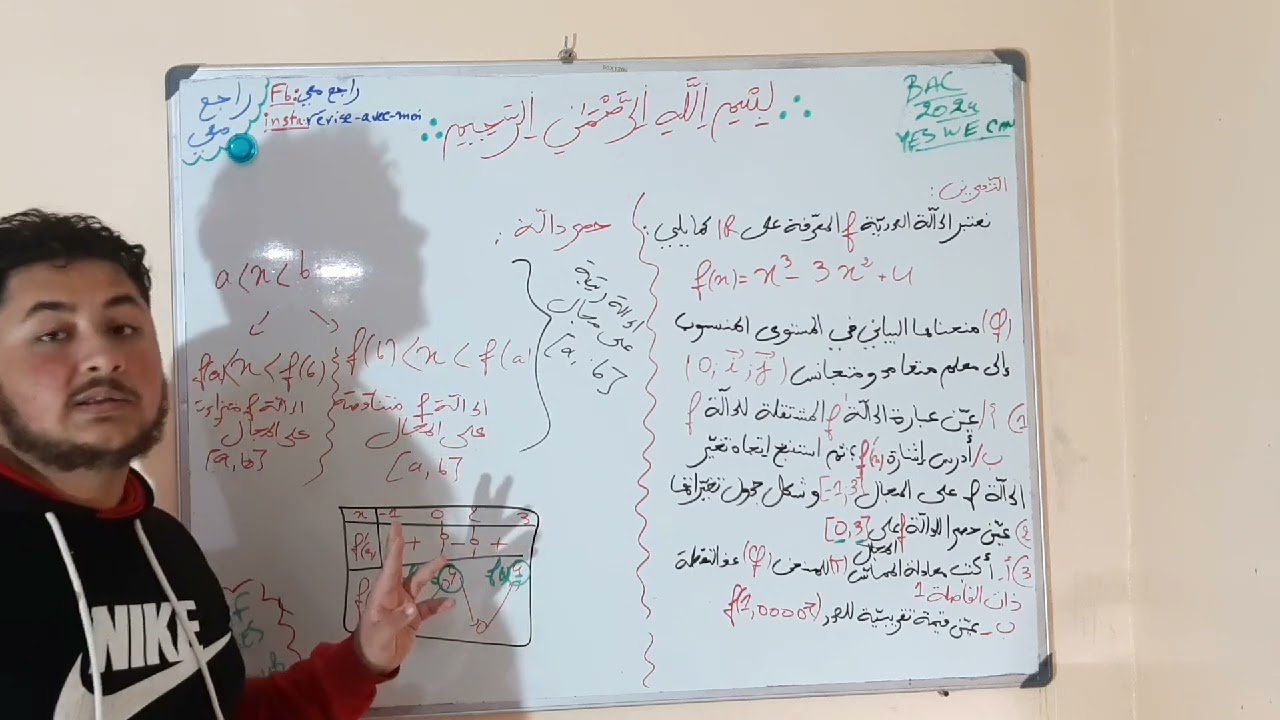 بِسْمِ اللَّهِ الرَّحْمَنِ الرَّحِيمِ
BAC
2024
YES WE CAN
راجع
معي
Fb: راجع معي
insta: revise-avec-moi
التمرين:
نعتبر الدالة العددية f المعرفة على IR كما يلي:
f(x)= x³ - 3x² + 4
(φ) منحناها البياني في المستوى المنسوب
إلى معلم متعامد ومتجانس (0; i⃗; j⃗)
1) أ/ عيّن عبارة الدالة f' المشتقة للدالة f
ب/ أدرس إشارة f'(x)؛ ثم استنتج اتجاه تغيّر
الدالة f على المجال [-1,3] وشكل جدول تغيراتها
2) عيّن حصر الدالة f على المجال [0,3]
3) أ- أكتب معادلة المماس (T) للمنحنى (φ) عند النقطة
ذات الفاصلة 1
ب- عيّن قيمة تقريبية للعدد f(1,00007)
حصر دالة:
الدالة رتيبة
على مجال
[a, b]
a < x < b
f(a) < x < f(b)
f(b) < x < f(a)
الدالة f متزايدة
على المجال
[a, b]
الدالة f متناقصة
على المجال
[a, b]
x -1 0 2 3
f'(x) + 0 - 0 +
f
4
0
NIKE